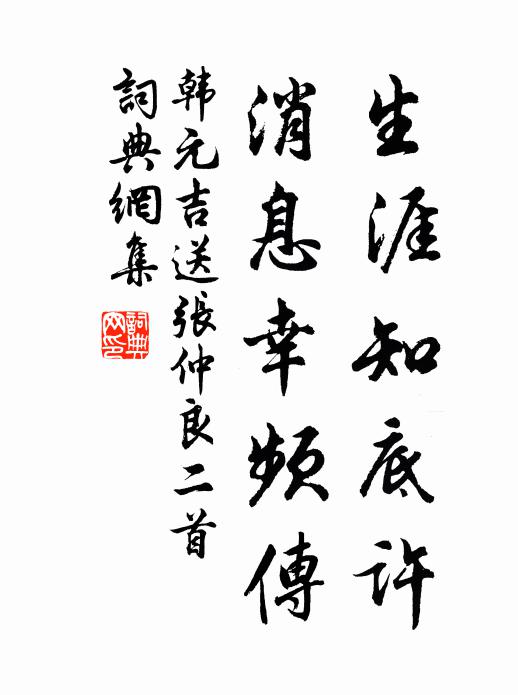 生涯知底许
消息幸频傳
韩元吉送張仲良二首
詞典網集
詞典网印